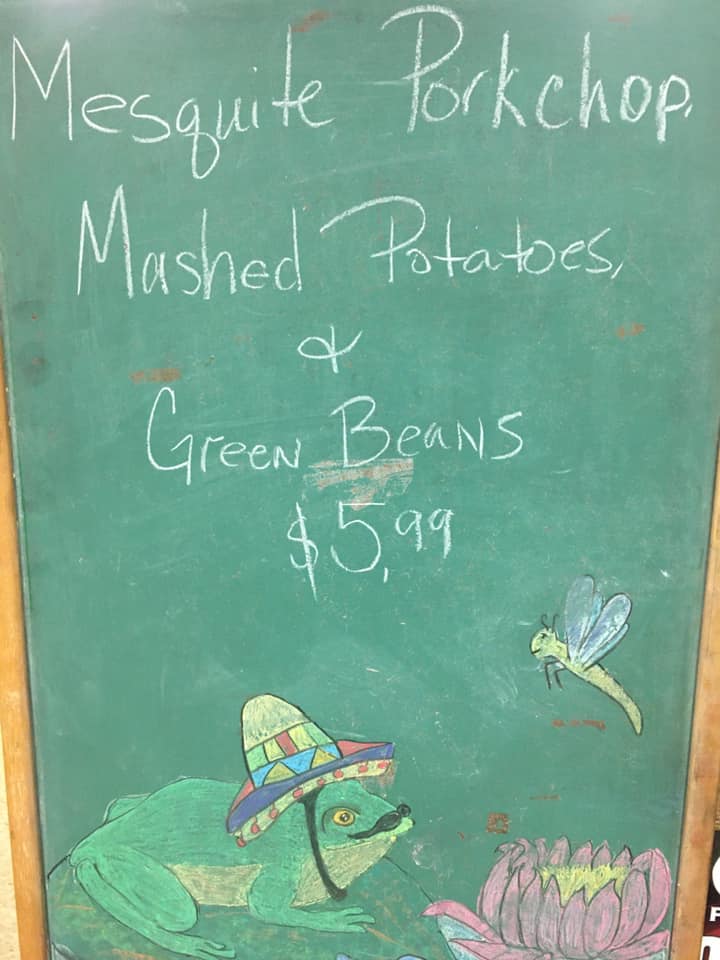 Mesquite Porkchop,
Mashed Potatoes,
&
Green Beans
$5.99